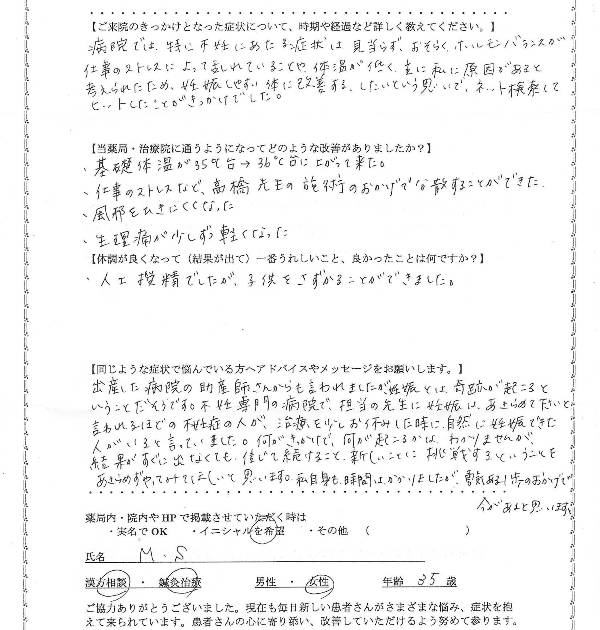 【ご来院のきっかけとなった症状について、時期や経過など詳しく教えてください。】
病院では、特に不妊にあたる症状は見当らず、おそらく、ホルモンバランスが
仕事のストレスによって乱れていることや、体温が低く、主に私に原因があると
考えられたため、妊娠しやすい体に改善する、したいという思いで、ネット検索して
ヒットしたことがきっかけでした。
【当薬局・治療院に通うようになってどのような改善がありましたか？】
・基礎体温が35℃台→36℃台に上がって来た。
・仕事のストレスなど、高橋先生の施術のおかげで分散することができた.
・風邪をひきにくくなった
・生理痛が少しずつ軽くなった
【体調が良くなって（結果が出て）一番うれしいこと、良かったことは何ですか？】
・人工授精でしたが、子供をさずかることができました。
【同じような症状で悩んでいる方へアドバイスやメッセージをお願いします。】
出産した病院の助産師さんからも言われましたが妊娠とは、奇跡が起こると
いうことだそうです。不妊専門の病院で、担当の先生に妊娠は、あきらめて下さいと
言われるほどの不妊症の人が、治療を少しお休みした時に、自然に妊娠できた
人がいると言っていました。何がきっかけで、何が起こるかは、わかりませんが、
結果がすぐに出なくても、信じて続けること、新しいことに挑戦するということを
あきらめずやってみてほしいと思います。私自身も、時間はかかりましたが、勇気ある1歩のおかげで
今があると思います。
薬局内・院内やHPで掲載させていただく時は
・実名でOK　・イニシャルを希望　・その他　（　　　　　　）
氏名　M.S
漢方相談　・　鍼灸治療　　男性　・　女性　　年齢　35　歳
ご協力ありがとうございました。現在も毎日新しい患者さんがさまざまな悩み、症状を抱
えて来られています。患者さんの心に寄り添い、改善していただけるよう努めて参ります。